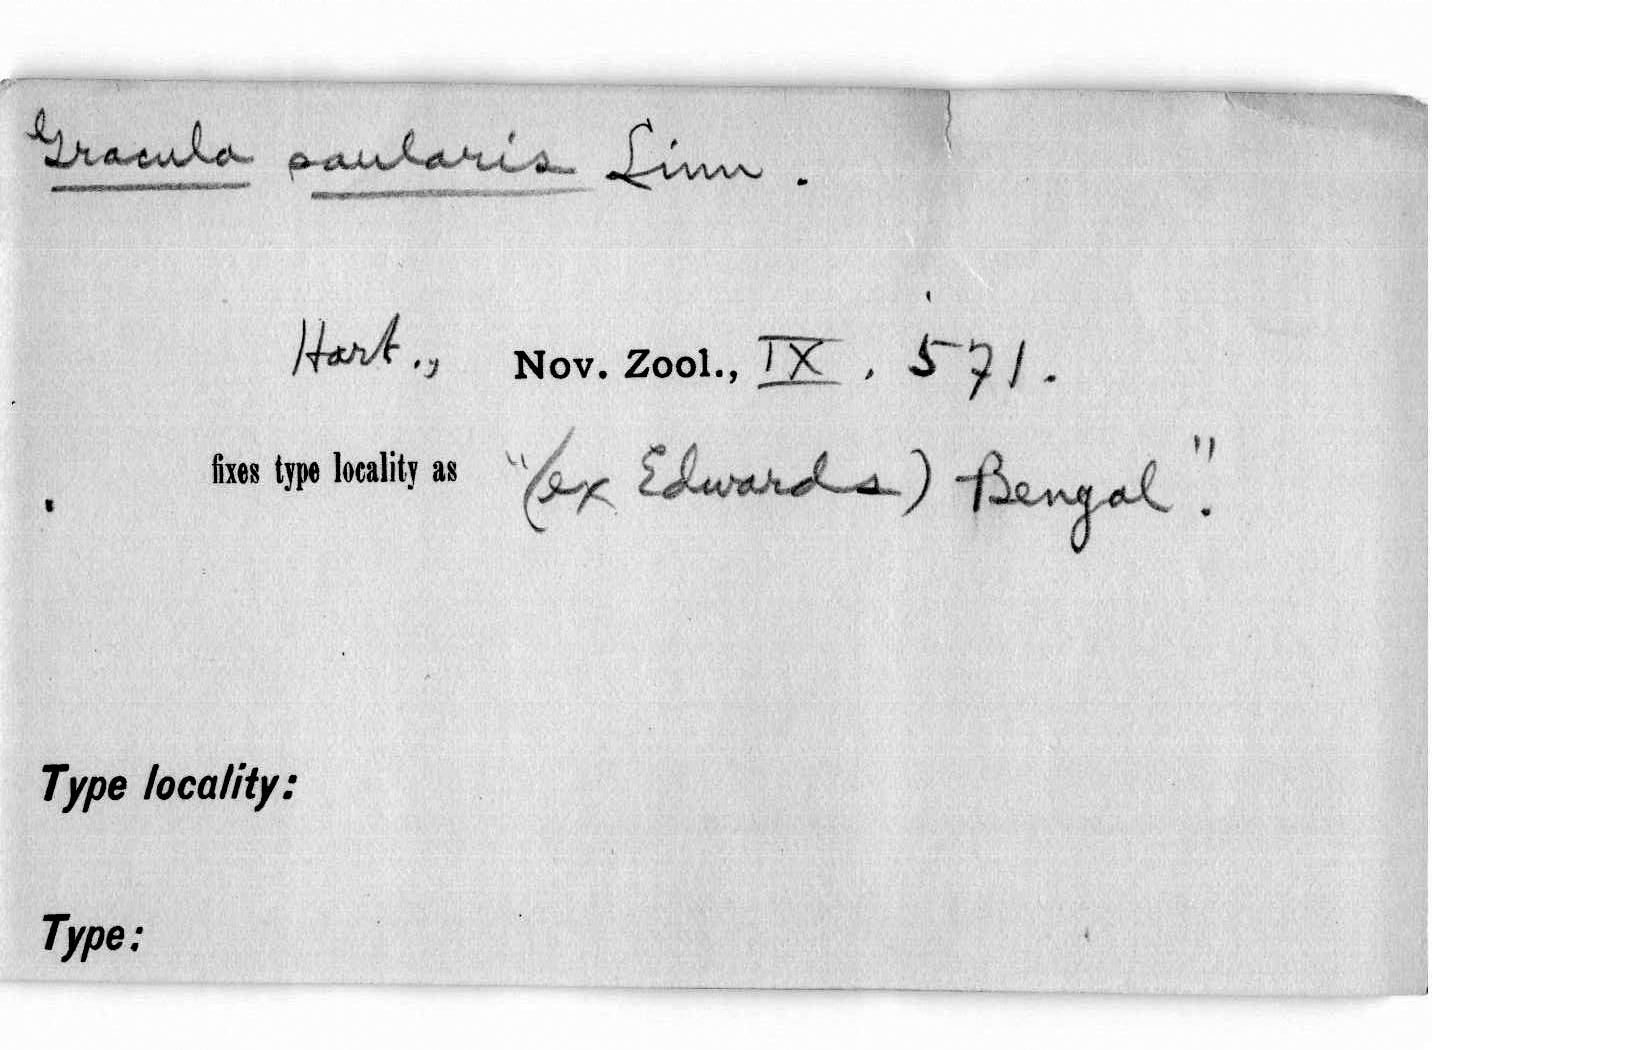 Gracula saularis Linn.
Hart., Nov. Zool., IX, 571.
fixes type locality as "(ex Edwards) Bengal".
Type locality:
Type: